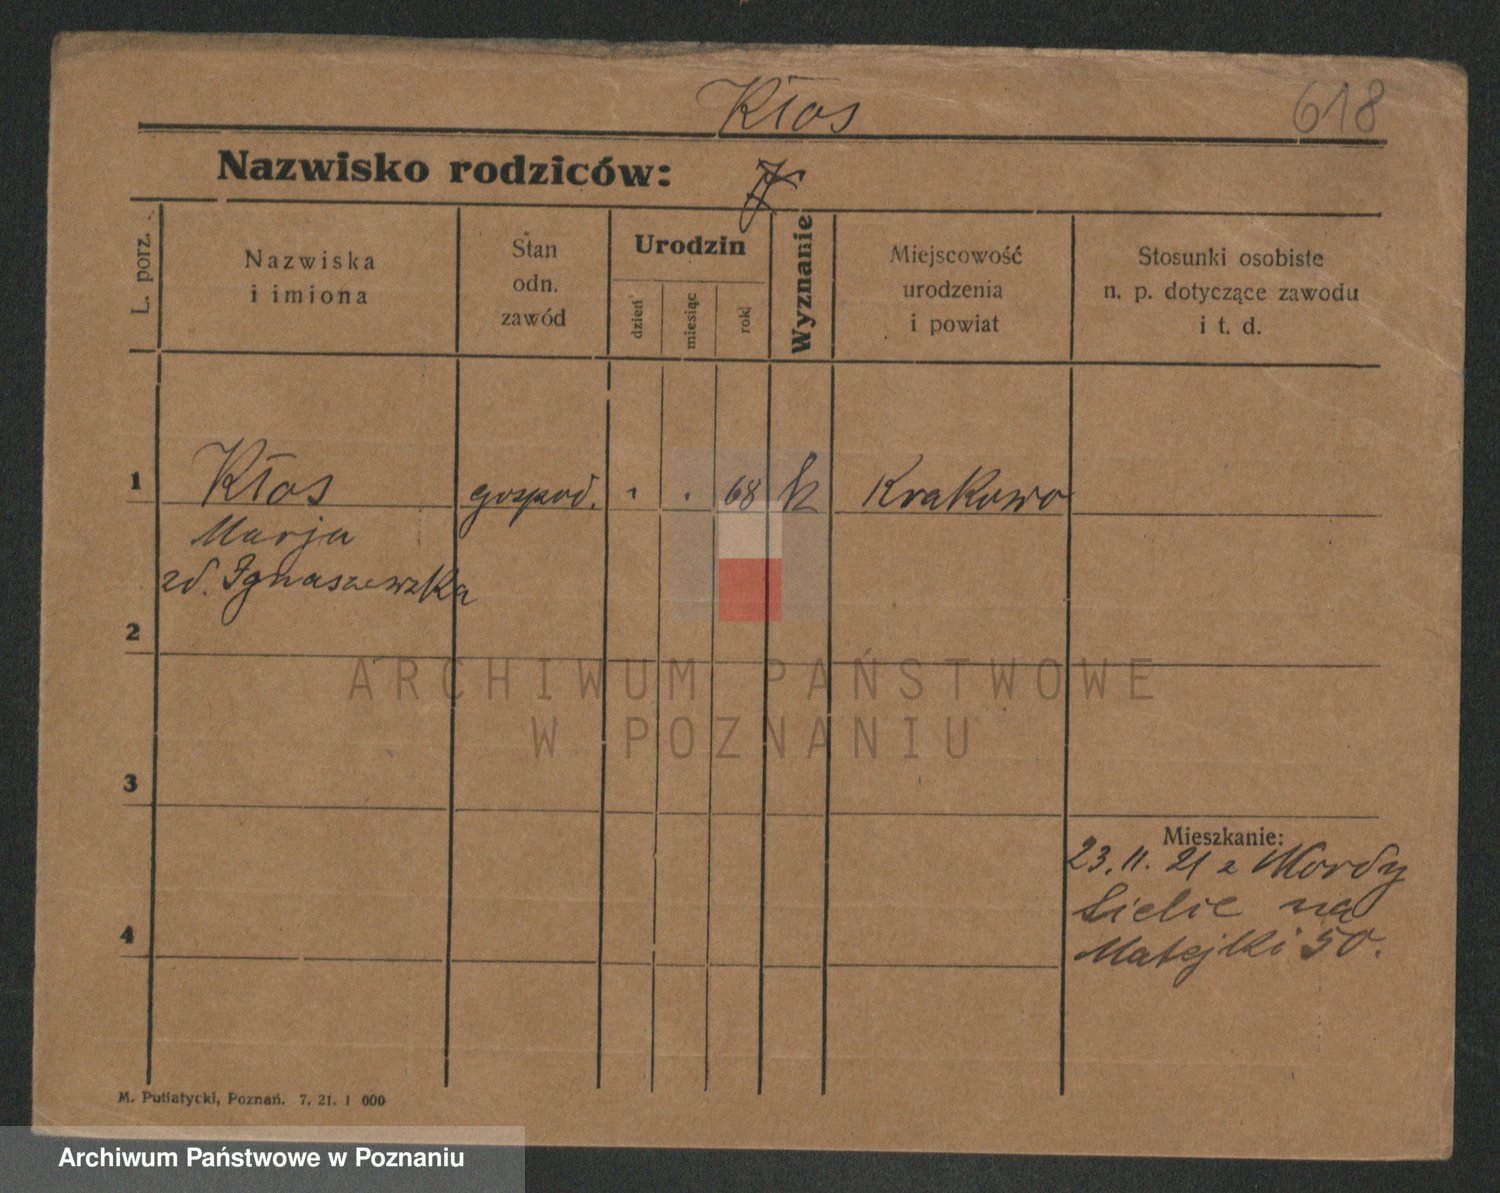 Kłos
618
Nazwisko rodziców:
L. porz.
Nazwiska
i imiona
Stan
odn.
zawód
Urodzin
dzień
miesiąc
rok
Wyznanie
Miejscowość
urodzenia
i powiat
Stosunki osobiste
n. p. dotyczące zawodu
i t. d.
1
Kłos
gospod.
68
k
Krakowo
Marja
zd. Ignaszewska
2
ARCHIWUM PAŃSTWOWE
W POZNANIU
3
Mieszkanie:
23.11.21 z Mordy
na
4
Matejki 50.
M. Putiatycki, Poznań. 7. 21. 1 000
Archiwum Państwowe w Poznaniu